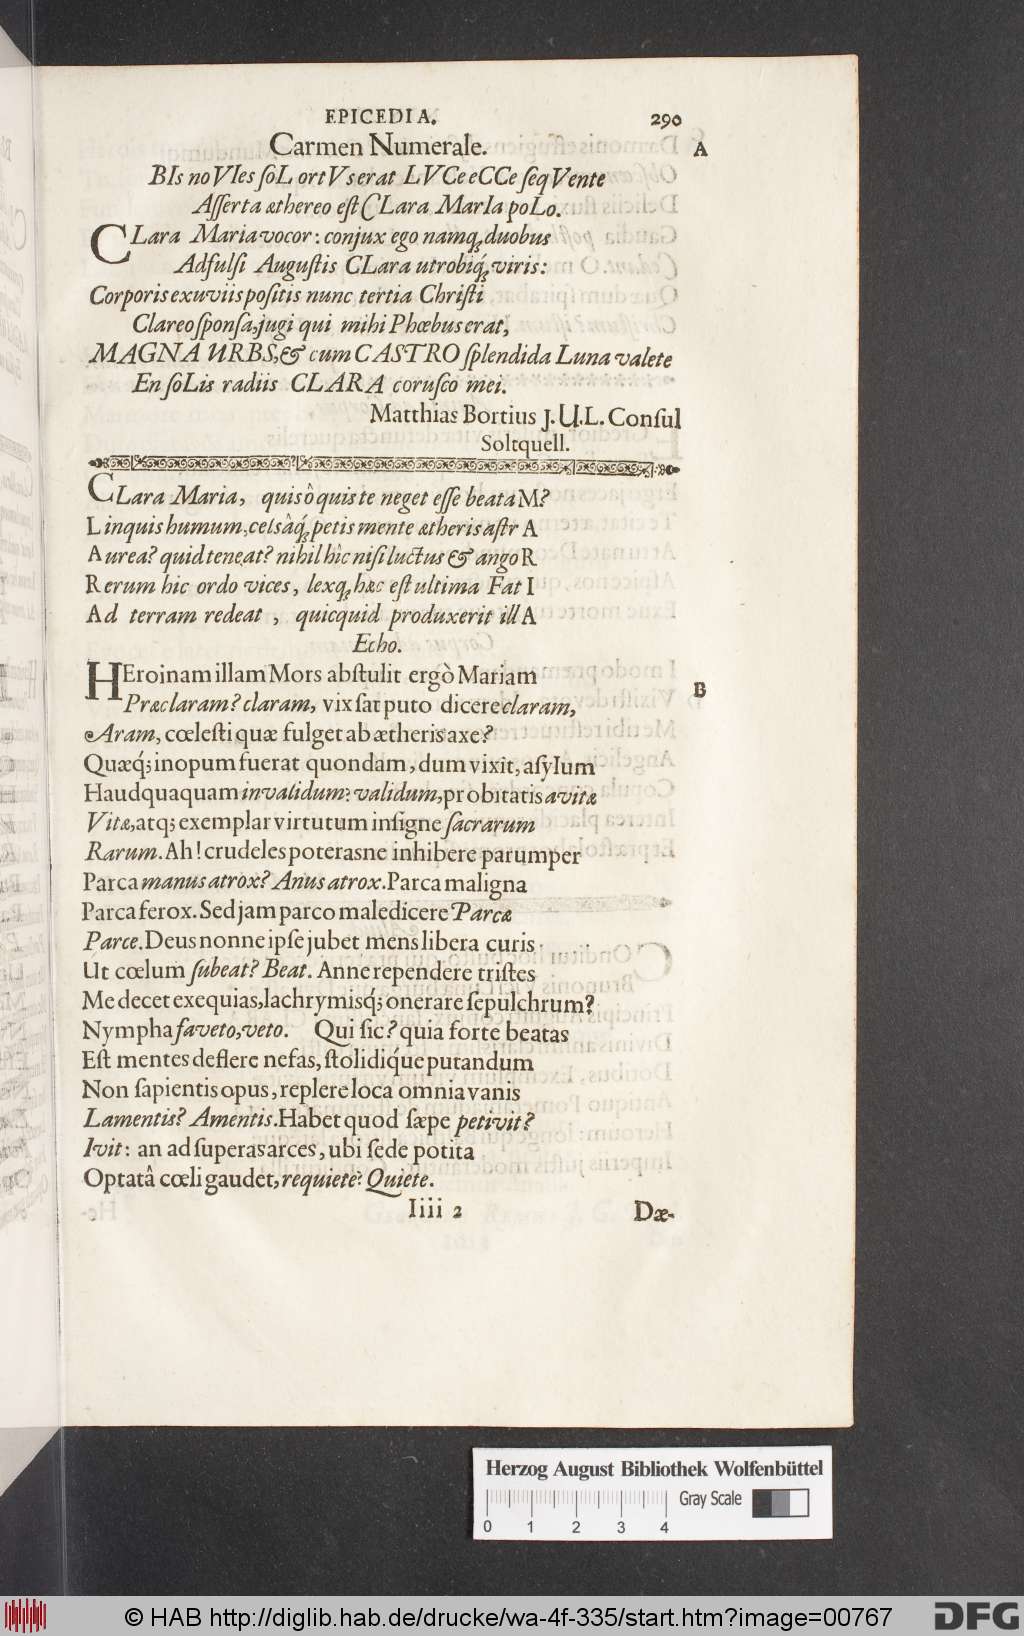 EPICEDIA. 290
Carmen Numerale. A
BIs noVIes ſoL ortVs erat LVCe eCCe ſeqVente
Aſſerta æthereo eſt CLara MarIa poLo.
CLara Maria vocor: conjux ego namq; duobus
Adfulſi Auguſtis CLara utrobiq́; viris:
Corporis exuviis poſitis nunc tertia Chriſti
Clareo ſponſa, jugi qui mihi Phœbus erat,
MAGNA URBS, & cum CASTRO ſplendida Luna valete
En ſoLis radiis CLARA coruſco mei.
Matthias Bortius J. U. L. Conſul
Soltquell.
CLara Maria, quis ô quis te neget eſſe beataM?
Linquis humum, celsâq́; petis mente ætheris aſtrA
Aurea? quid teneat? nihil hîc niſi luctus & angoR
Rerum hic ordo vices, lexq; hæc eſt ultima FatI
Ad terram redeat, quicquid produxerit illA
Echo.
HEroinam illam Mors abſtulit ergò Mariam
Præclaram? claram, vix ſat puto dicere claram, B
Aram, cœleſti quæ fulget ab ætheris axe?
Quæq́; inopum fuerat quondam, dum vixit, aſylum
Haudquaquam invalidum: validum, probitatis avitæ
Vitæ, atq; exemplar virtutum inſigne ſacrarum
Rarum. Ah! crudeles poterasne inhibere parumper
Parca manus atrox? Anus atrox. Parca maligna
Parca ferox. Sed jam parco maledicere Parcæ
Parce. Deus nonne ipſe jubet mens libera curis
Ut cœlum ſubeat? Beat. Anne rependere triſtes
Me decet exequias, lachrymisq́; onerare ſepulchrum?
Nympha faveto, veto. Qui ſic? quia forte beatas
Eſt mentes deflere nefas, ſtolidiq́ue putandum
Non ſapientis opus, replere loca omnia vanis
Lamentis? Amentis. Habet quod ſæpe petivit?
Ivit: an ad ſuperas arces, ubi ſede potita
Optatâ cœli gaudet, requiete? Quiete.
Iiii 2 Dæ-
Herzog August Bibliothek Wolfenbüttel
Gray Scale
0 1 2 3 4
© HAB http://diglib.hab.de/drucke/wa-4f-335/start.htm?image=00767 DFG